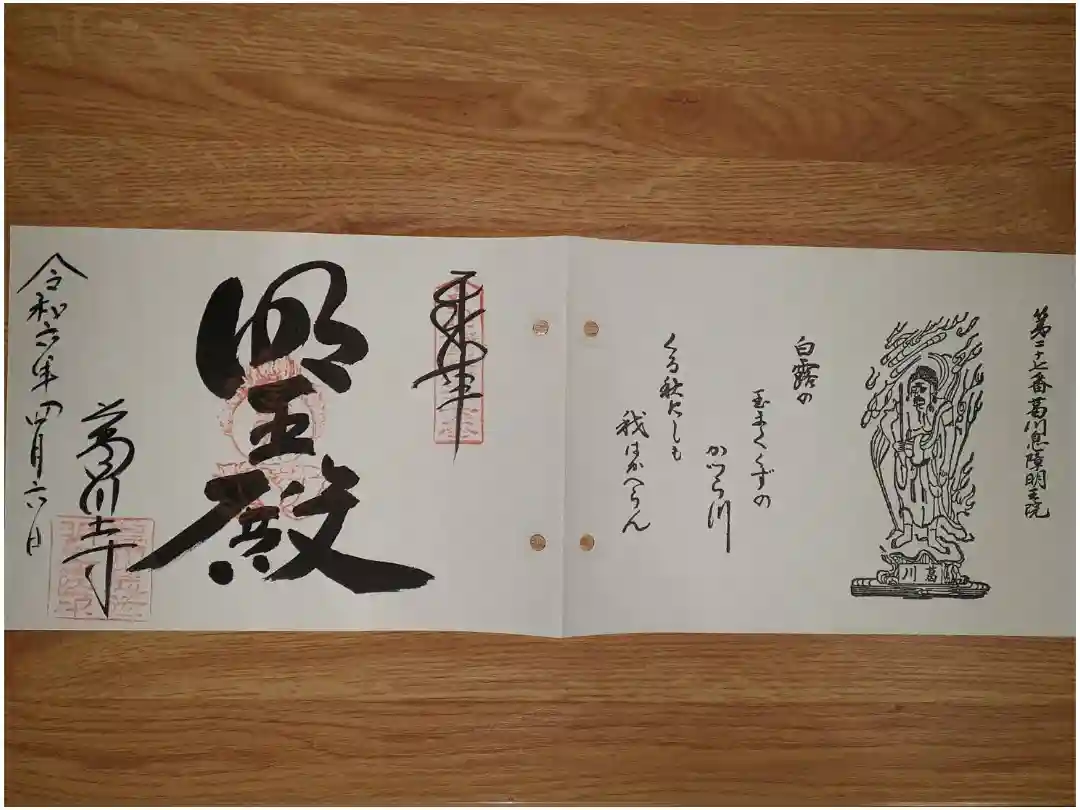 第二十七番葛川息障明王院
葛川
白露の
玉まくくずの
かつら川
くる秋にしも
我はかへらん
奉拝
明王殿
葛川寺
令和六年四月六日